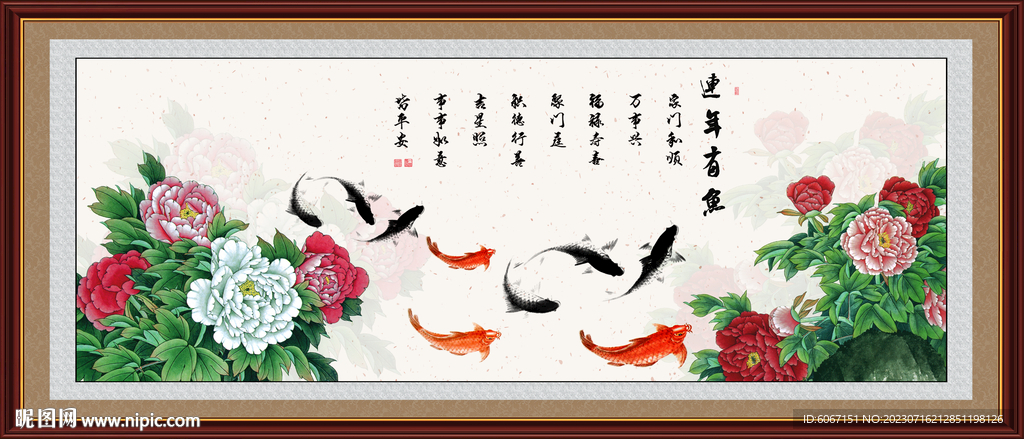 連年有魚
家门和顺
万事兴
福禄寿喜
聚门庭
积德行善
吉星照
事事如意
皆平安
昵图网 www.nipic.com
ID:6067151 NO:20230716212851198126